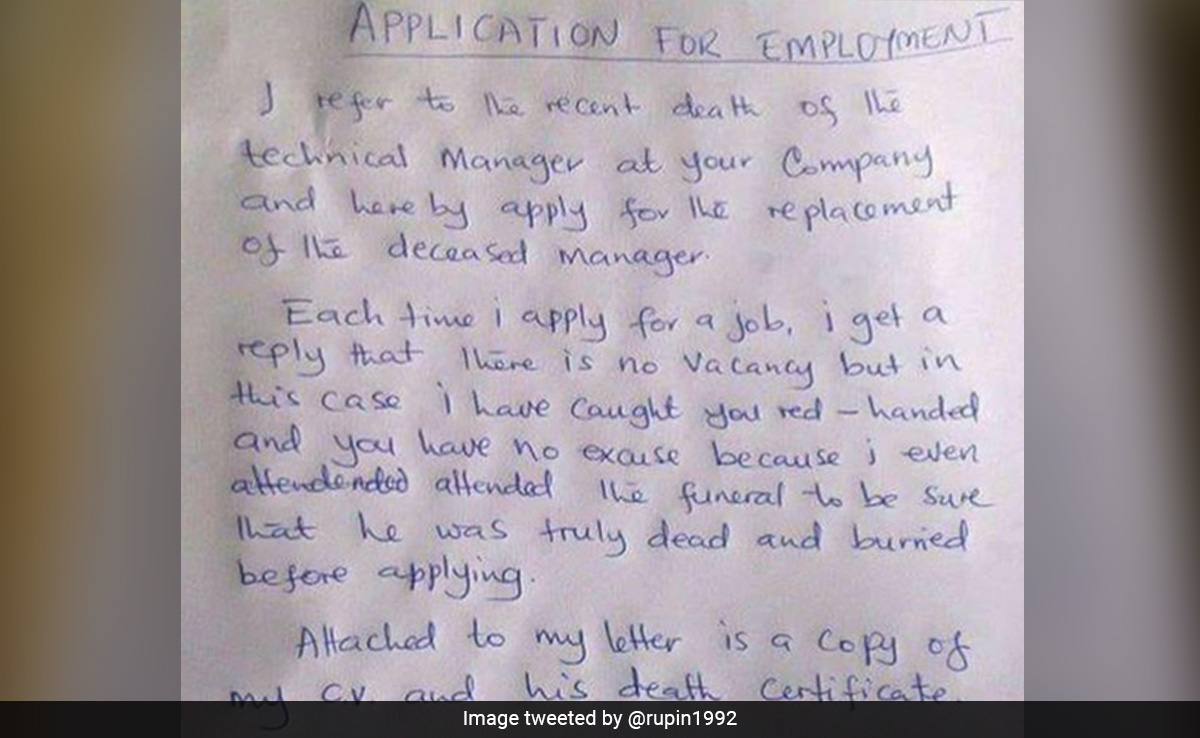 APPLICATION FOR EMPLOYMENT
I refer to the recent death of the
technical Manager at your Company
and here by apply for the replacement
of the deceased manager.
Each time i apply for a job, i get a
reply that there is no vacancy but in
this case i have caught you red - handed
and you have no excuse because i even
attendended attended the funeral to be sure
that he was truly dead and burried
before applying.
Attached to my letter is a copy of
my C.V. and his death certificate.
Image tweeted by @rupin1992